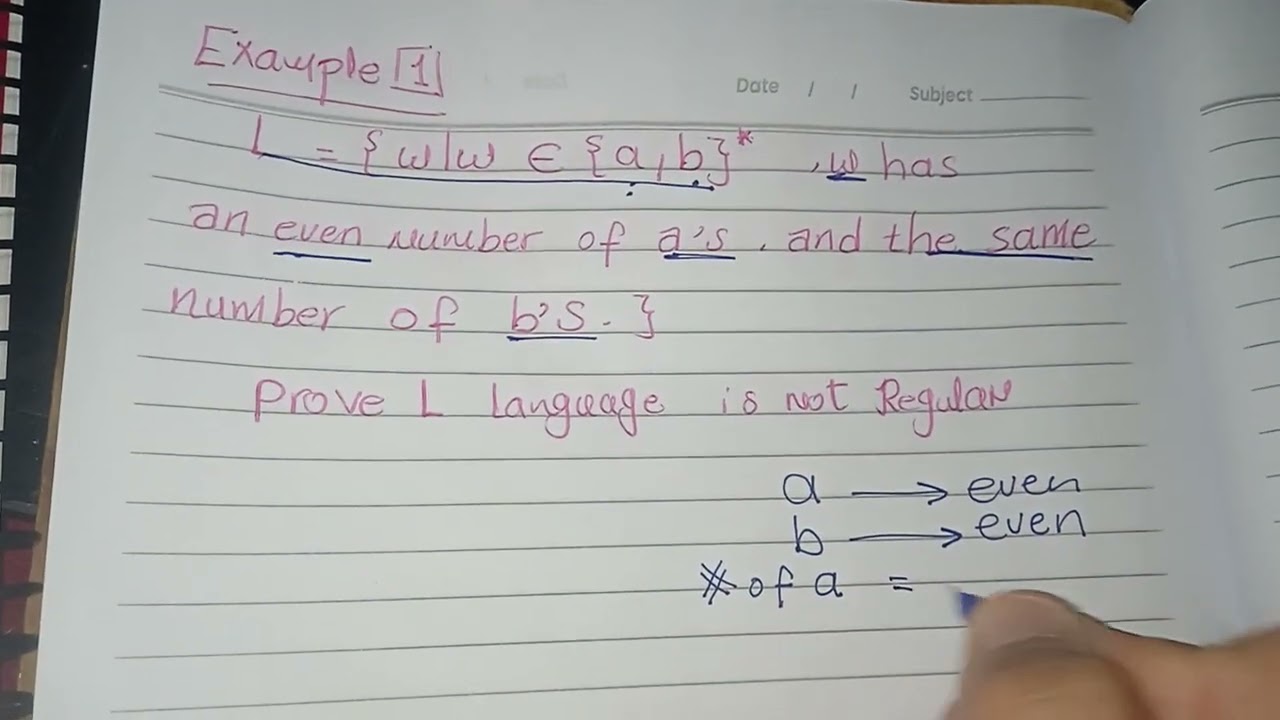 Example [1]
Date / / Subject
L = {w|w ∈ {a,b}* , w has
an even number of a's . and the same
number of b's. }
Prove L language is not Regular
a → even
b → even
# of a =